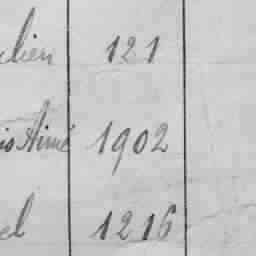 lien 121
is Aimé 1902
el 1216